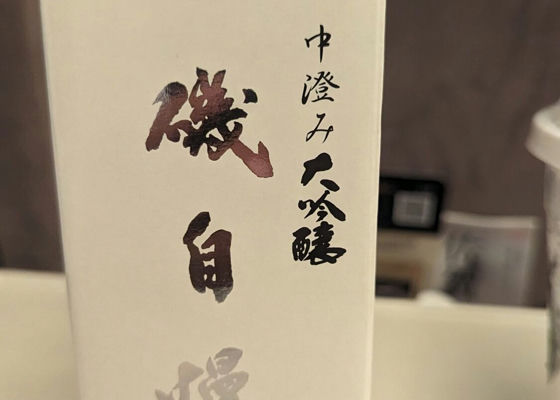 中澄み大吟醸
磯自慢